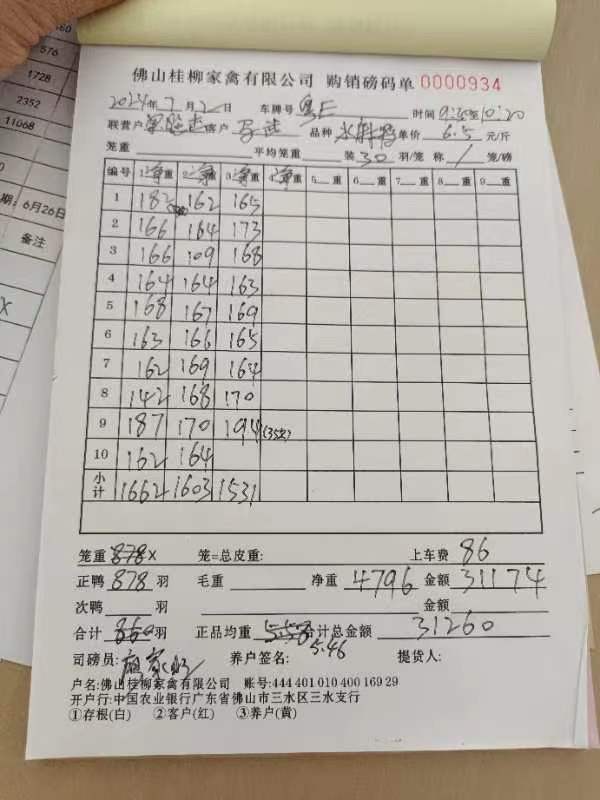 60
576
1728
2352
11068
期：6月26日
备注
X
佛山桂柳家禽有限公司 购销磅码单 0000934
2024年7月2日 车牌号 粤E 时间 9:30至10:20
联营户 客户 品种 单价 6.5 元/斤
笼重 平均笼重 装 30 羽/笼 称 1 笼/磅
编号 1净重 2净重 3净重 4净重 5 重 6 重 7 重 8 重 9 重
1 183 162 165
2 166 164 173
3 166 109 168
4 164 164 163
5 168 167 169
6 163 166 165
7 162 169 164
8 142 168 170
9 187 170 194 (35只)
10 162 164
小计 1662 1603 1531
笼重 878 X 笼=总皮重: 上车费 86
正鸭 878 羽 毛重 净重 4796 金额 31174
次鸭 羽 金额
合计 860 羽 正品均重 5.58 合计总金额 31260
5.46
司磅员: 养户签名: 提货人:
户名:佛山桂柳家禽有限公司 账号:444 401 010 400 169 29
开户行:中国农业银行广东省佛山市三水区三水支行
①存根(白) ②客户(红) ③养户(黄)